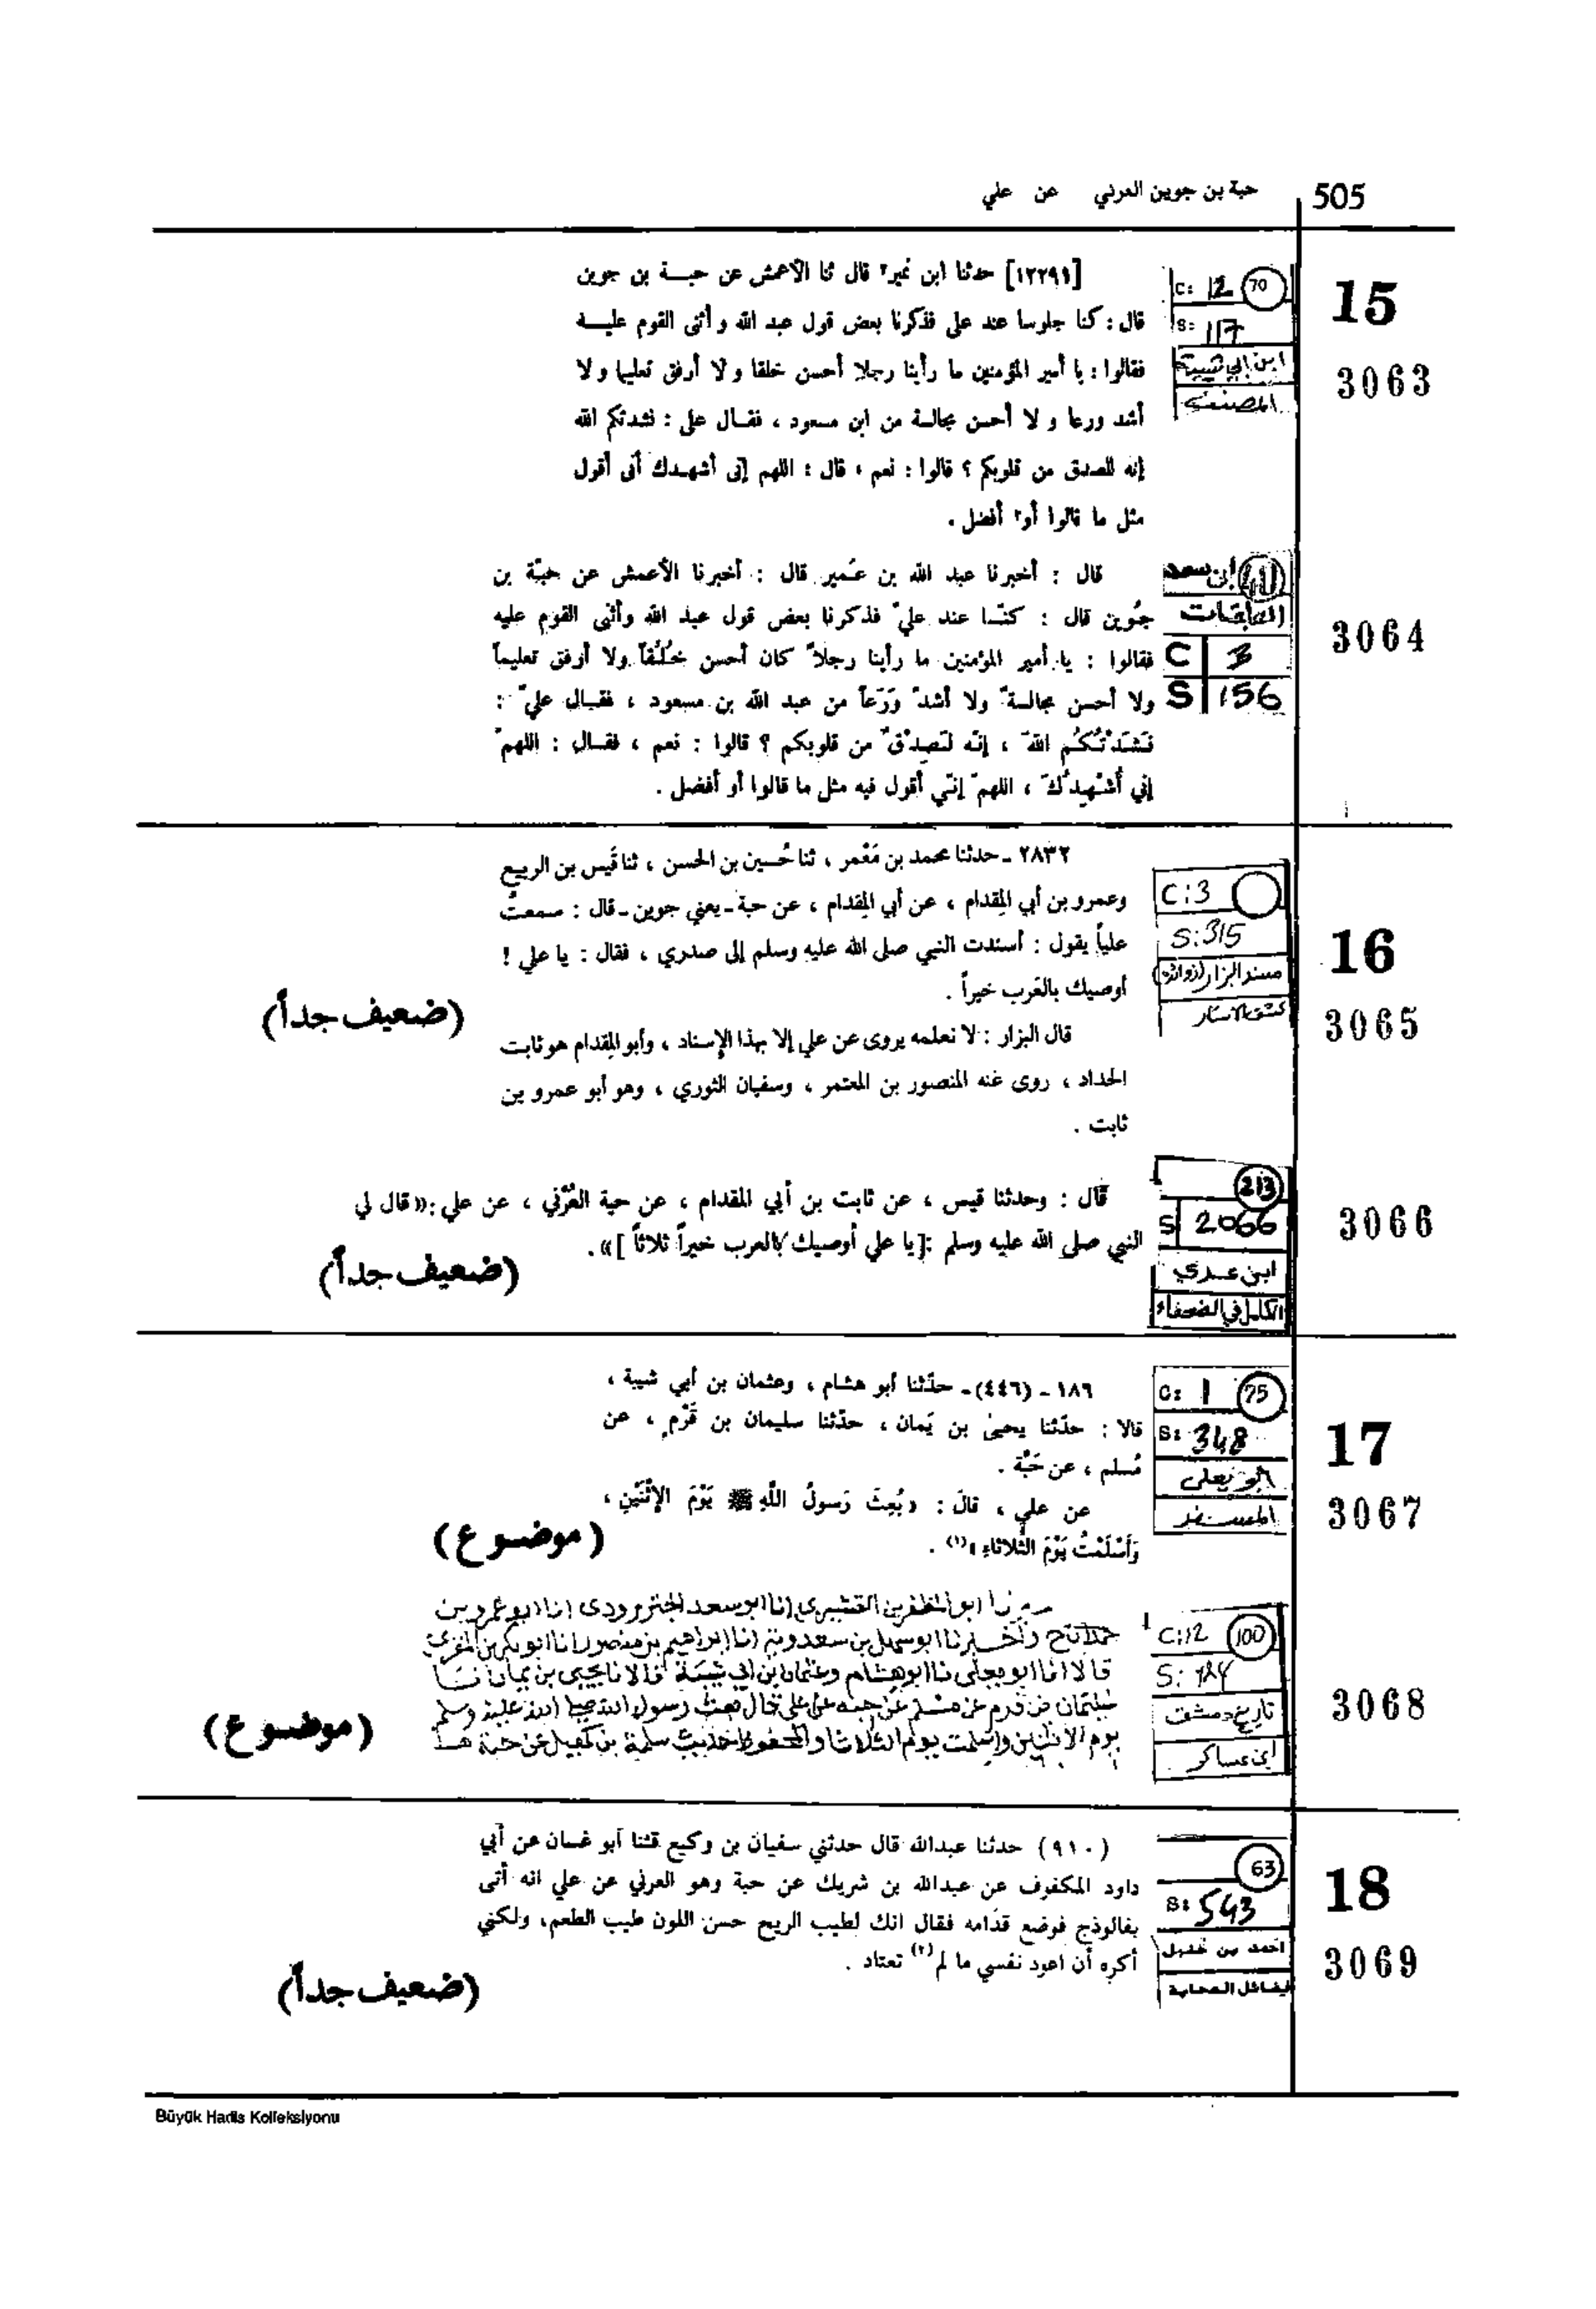 505
حبة بن جوين العرني عن علي
15
3063
C: 12 70
S: 117
ابن ابي شيبة
المصنف
[١٢٢٩١] حدثنا ابن نمير٢ قال ثنا الأعمش عن حبـــة بن جوين
قال : كنا جلوسا عند على فذكرنا بعض قول عبد الله و أثنى القوم عليــه
فقالوا : يا أمير المؤمنين ما رأينا رجلا أحسن خلقا و لا أرفق تعليما و لا
أشد ورعا و لا أحسن مجالسة من ابن مسعود ، فقــال على : نشدتكم الله
إنه للصدق من قلوبكم ؟ قالوا : نعم ، قال : اللهم إنى أشهـدك أنى أقول
مثل ما قالوا أو٢ أفضل .
3064
ابن سعد
الطبقات
C 3
S 156
قال : أخبرنا عبد الله بن نُمير قال : أخبرنا الأعمش عن حبّة بن
جُوين قال : كنّا عند عليّ فذكرنا بعض قول عبد الله وأثنى القوم عليه
فقالوا : يا أمير المؤمنين ما رأينا رجلاً كان أحسن خُلُقاً ولا أرفق تعليماً
ولا أحسن مجالسةً ولا أشدّ وَرَعاً من عبد الله بن مسعود ، فقــال عليّ :
نَشَدْتُكُم اللهَ ، إنّه لَصِدْقٌ من قلوبكم ؟ قالوا : نعم ، فقــال : اللهمّ
إني أُشْهِدُكَ ، اللهمّ إنّي أقول فيه مثل ما قالوا أو أفضل .
16
3065
C:3
S:315
مسند البزار (زوائد)
كشف الأستار
٢٨٣٢ ـ حدثنا محمد بن مَعْمر ، ثنا حُسين بن الحسن ، ثنا قَيس بن الربيع
وعمرو بن أبي المِقدام ، عن أبي المِقدام ، عن حبة ـ يعني جوين ـ قال : سمعتُ
علياً يقول : أسندت النبي صلى الله عليه وسلم إلى صدري ، فقال : يا علي !
أوصيك بالعَرب خيراً .
(ضعيف جداً)
قال البزار : لا نعلمه يروى عن علي إلا بهذا الإسناد ، وأبو المِقدام هو ثابت
الحداد ، روى عنه المنصور بن المعتمر ، وسفيان الثوري ، وهو أبو عمرو بن
ثابت .
3066
213
S 2066
ابن عدي
الكامل في الضعفاء
قال : وحدثنا قيس ، عن ثابت بن أبي المقدام ، عن حية العُرَني ، عن علي :«قال لي
النبي صلى الله عليه وسلم :[يا علي أوصيك بالعرب خيراً ثلاثاً ]» .
(ضعيف جداً)
17
3067
C: 1 75
S: 348
ابو يعلى
المسند
١٨٦ ـ (٤٤٦) ـ حدّثنا أبو هشام ، وعثمان بن أبي شيبة ،
قالا : حدّثنا يحيىٰ بن يَمان ، حدّثنا سليمان بن قَرْم ، عن
مُسلم ، عن حَبَّة .
عن علي ، قالَ : « بُعِثَ رَسولُ اللَّهِ ﷺ يَوْمَ الإِثْنَيْنِ ،
وَأَسْلَمْتُ يَوْمَ الثُّلاثاءِ »(١) .
(موضوع)
3068
C:12 100
S:
تاريخ دمشق
ابن عساكر
ابو المظفر بن القشيري انا ابو سعد الجنزرودي انا ابو عمرو بن
حمدان ح واخبرنا ابو سهل بن سعدويه انا ابراهيم بن منصور انا ابو بكر بن المقرئ
قالا انا ابو يعلى نا ابو هشام وعثمان بن ابي شيبة قالا نا يحيى بن يمان نا
سليمان بن قرم عن مسلم عن حبه عن علي قال بعث رسول الله صلى الله عليه وسلم
يوم الاثنين واسلمت يوم الثلاثا والمحفوظ حديث سلمة بن كهيل عن حبة
(موضوع)
18
3069
63
S: 543
احمد بن حنبل
فضائل الصحابة
(٩١٠) حدثنا عبدالله قال حدثني سفيان بن وكيع قثنا أبو غسان عن أبي
داود المكفوف عن عبدالله بن شريك عن حبة وهو العرني عن علي انه أتى
بفالوذج فوضع قدامه فقال انك لطيب الريح حسن اللون طيب الطعم، ولكني
أكره أن اعود نفسي ما لم(٢) تعتاد .
(ضعيف جداً)
Büyük Hadis Kolleksiyonu